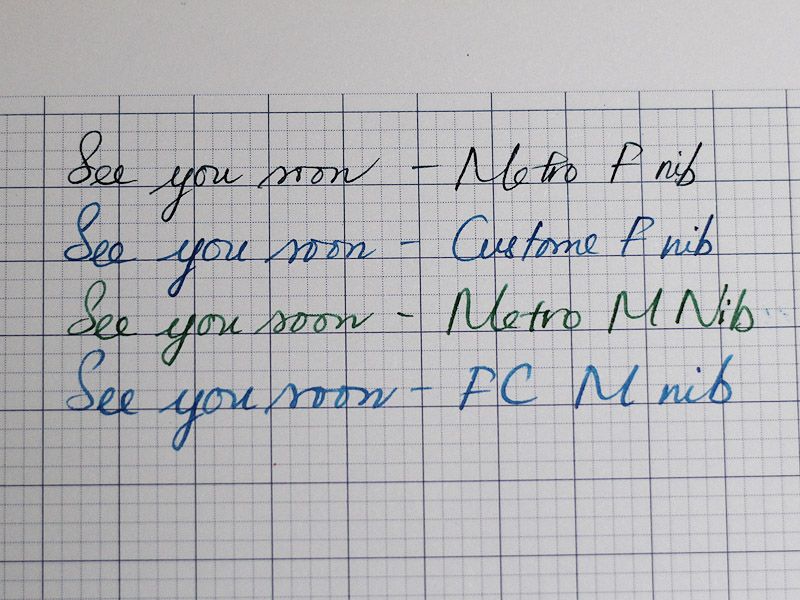 See you soon - Metro F nib
See you soon - Custome F nib
See you soon - Metro M Nib
See you soon - FC M nib